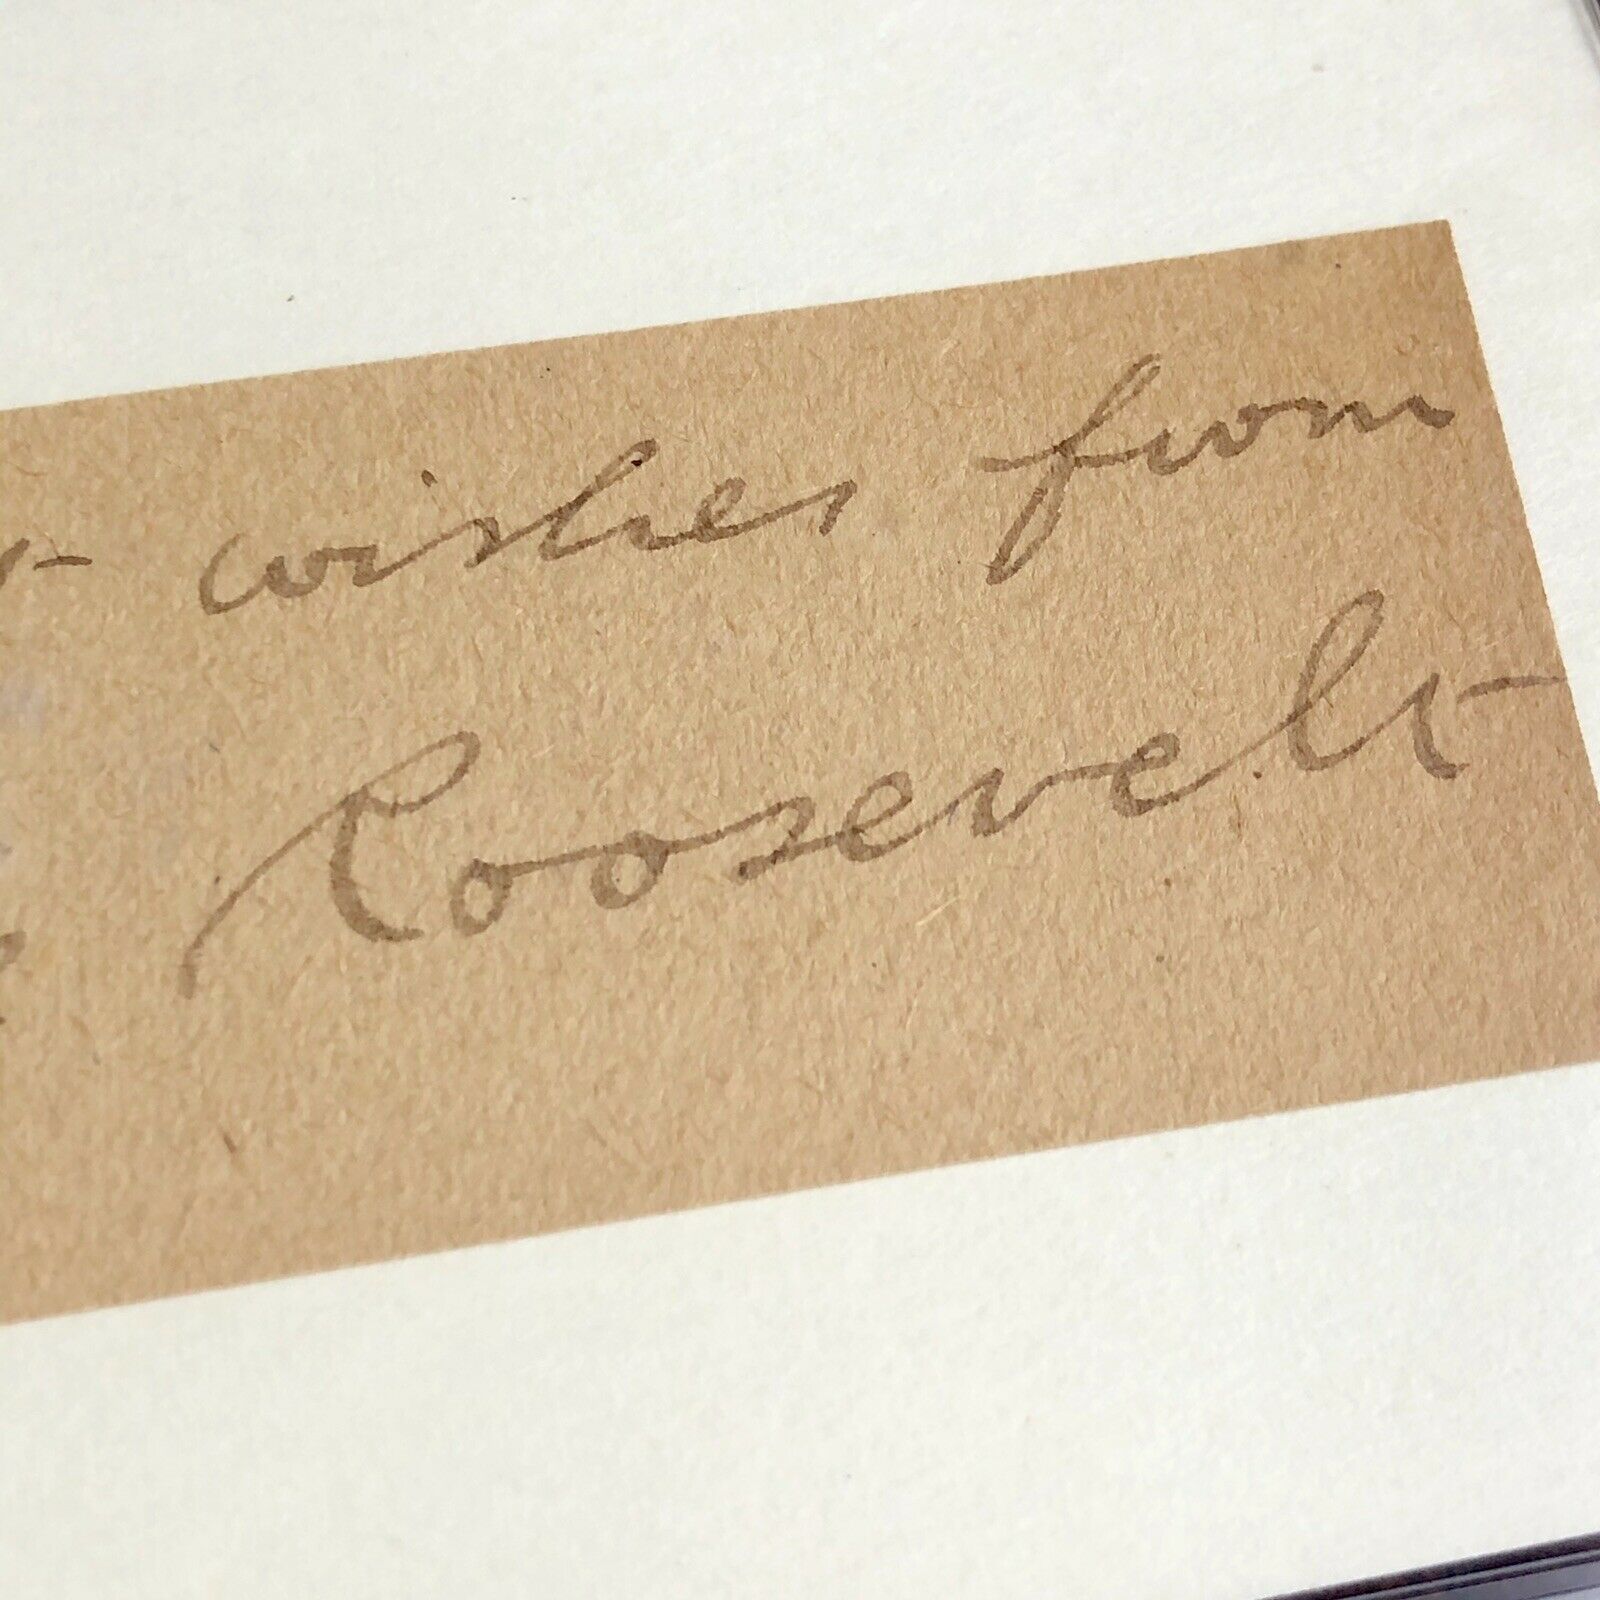 wishes from
Roosevelt